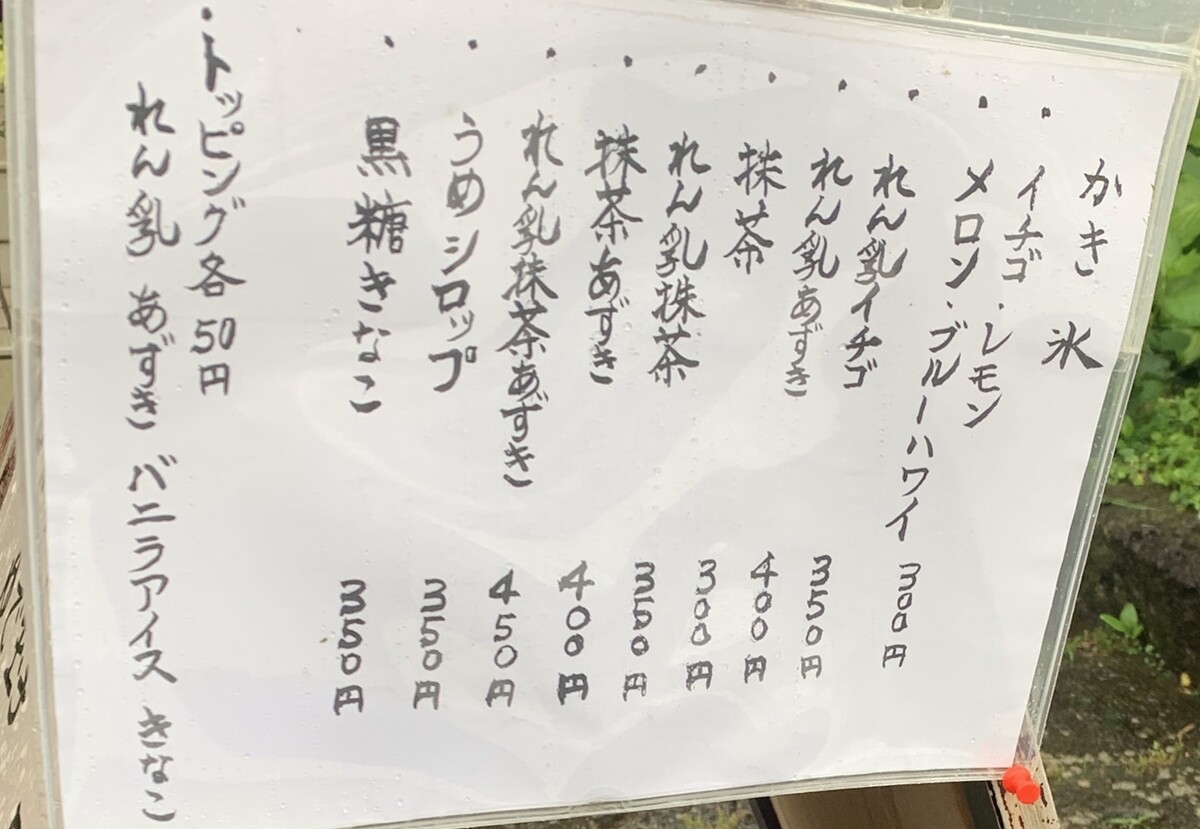 かき氷
・イチゴ・レモン
・メロン・ブルーハワイ 300円
・れん乳イチゴ 350円
・れん乳あずき 400円
・抹茶 300円
・れん乳抹茶 350円
・抹茶あずき 400円
・れん乳抹茶あずき 450円
・うめシロップ 350円
・黒糖きなこ 350円
・トッピング各50円
れん乳 あずき バニラアイス きなこ